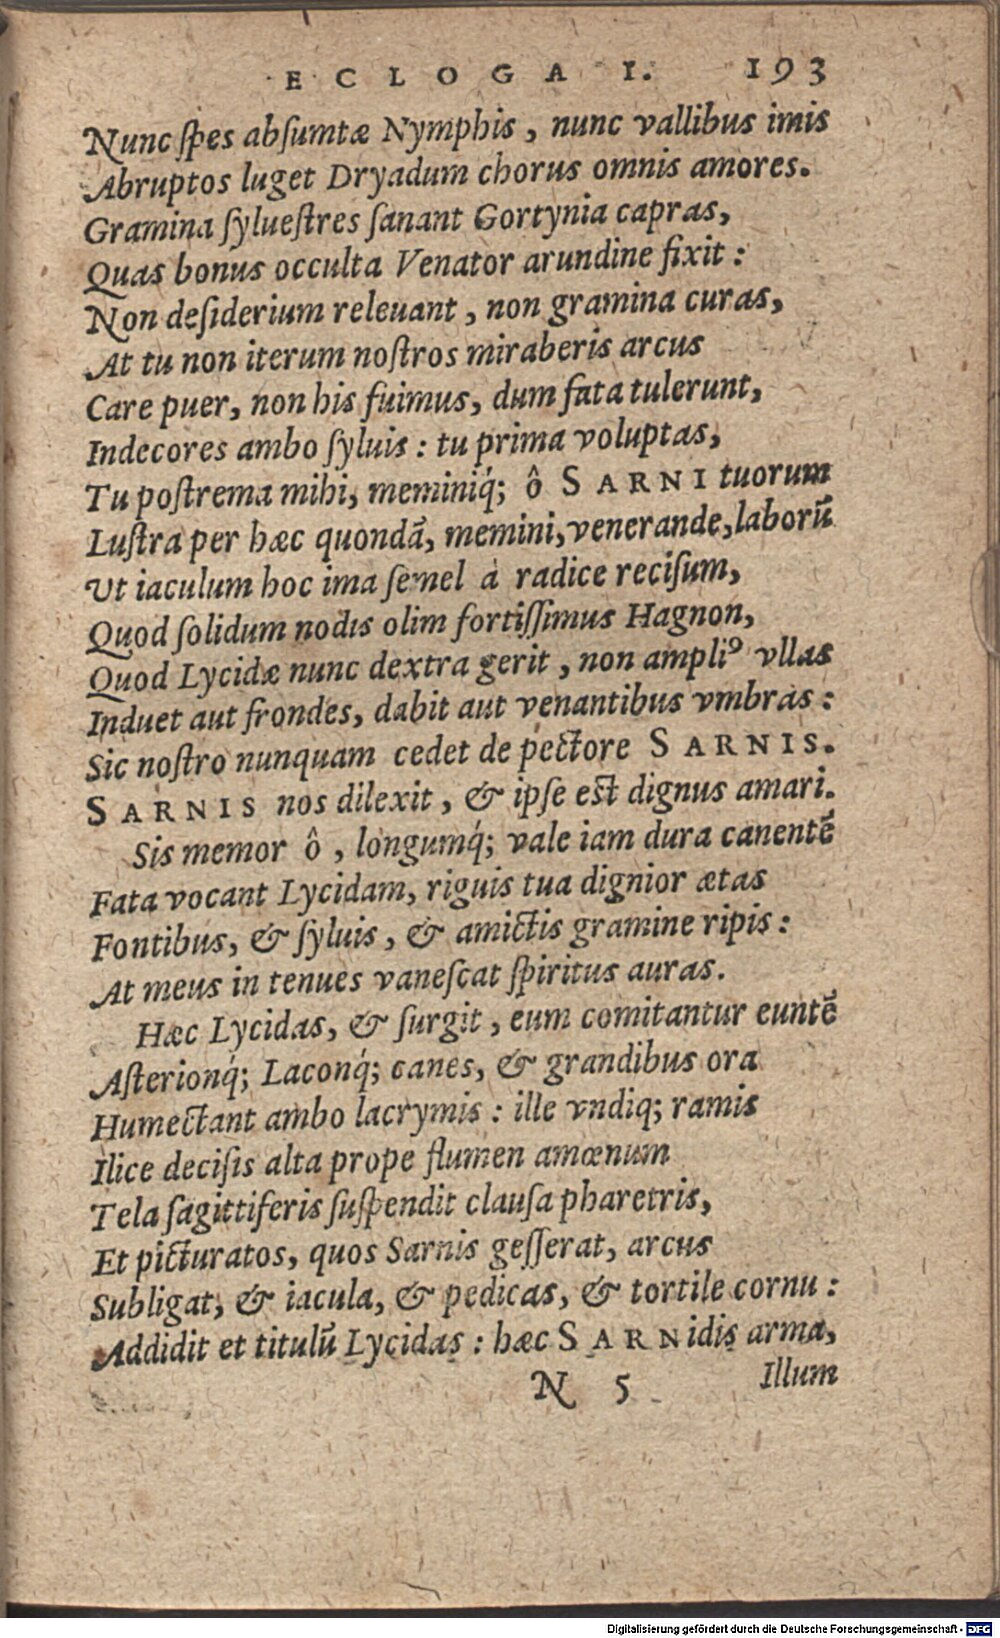 ECLOGA I. 193
Nunc ſpes abſumtæ Nymphis, nunc vallibus imis
Abruptos luget Dryadum chorus omnis amores.
Gramina ſylueſtres ſanant Gortynia capras,
Quas bonus occulta Venator arundine fixit:
Non deſiderium releuant, non gramina curas,
At tu non iterum noſtros miraberis arcus
Care puer, non his fuimus, dum fata tulerunt,
Indecores ambo ſyluis: tu prima voluptas,
Tu poſtrema mihi, meminiq́; ô SARNI tuorum
Luſtra per hæc quondā, memini, venerande, laborū
Vt iaculum hoc ima ſemel à radice reciſum,
Quod ſolidum nodis olim fortiſſimus Hagnon,
Quod Lycidæ nunc dextra gerit, non ampliꝰ vllas
Induet aut frondes, dabit aut venantibus vmbras:
Sic noſtro nunquam cedet de pectore SARNIS.
SARNIS nos dilexit, & ipſe eſt dignus amari.
Sis memor ô, longumq́; vale iam dura canentē
Fata vocant Lycidam, riguis tua dignior ætas
Fontibus, & ſyluis, & amictis gramine ripis:
At meus in tenues vaneſcat ſpiritus auras.
Hæc Lycidas, & ſurgit, eum comitantur euntē
Aſterionq́; Laconq́; canes, & grandibus ora
Humectant ambo lacrymis: ille vndiq; ramis
Ilice deciſis alta prope flumen amœnum
Tela ſagittiferis ſuſpendit clauſa pharetris,
Et picturatos, quos Sarnis geſſerat, arcus
Subligat, & iacula, & pedicas, & tortile cornu:
Addidit et titulū Lycidas: hæc SARNidis arma,
N 5 Illum
Digitalisierung gefördert durch die Deutsche Forschungsgemeinschaft - DFG